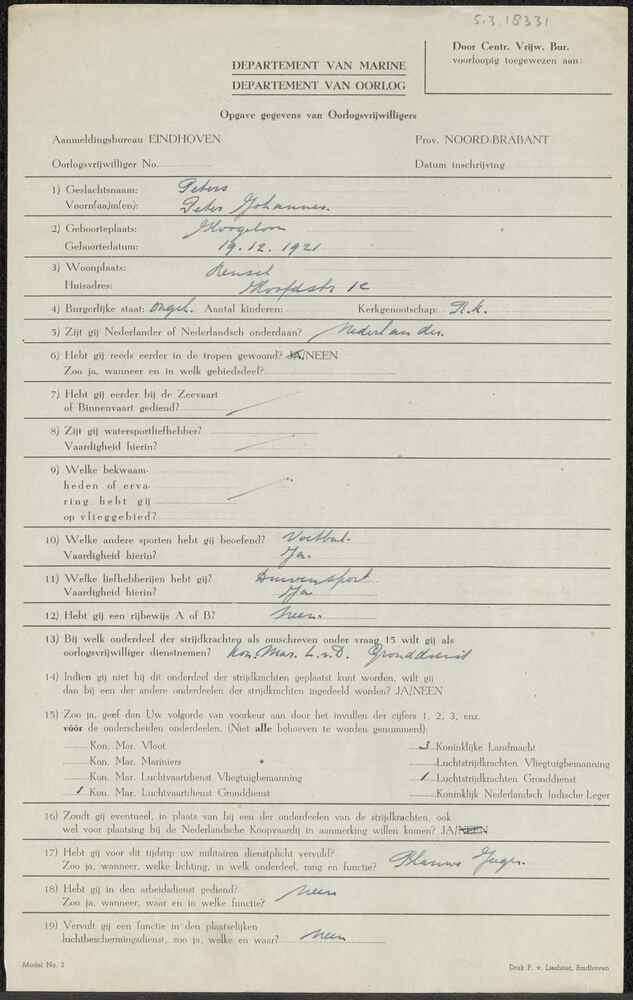 5.3.18331
Door Centr. Vrijw. Bur.
voorloopig toegewezen aan:
DEPARTEMENT VAN MARINE
DEPARTEMENT VAN OORLOG
Opgave gegevens van Oorlogsvrijwilligers
Aanmeldingsbureau EINDHOVEN Prov. NOORD-BRABANT
Oorlogsvrijwilliger No. Datum inschrijving
1) Geslachtsnaam: Peters
Voorna(a)m(en): Peter Johannes.
2) Geboorteplaats: Hoogeloon
Geboortedatum: 19.12.1921
3) Woonplaats: Reusel
Huisadres: Hoofdstr 1c
4) Burgerlijke staat: Ongeh. Aantal kinderen: Kerkgenootschap: R.k.
5) Zijt gij Nederlander of Nederlandsch onderdaan? Nederlander.
6) Hebt gij reeds eerder in de tropen gewoond? JA/NEEN
Zoo ja, wanneer en in welk gebiedsdeel?
7) Hebt gij eerder bij de Zeevaart
of Binnenvaart gediend?
8) Zijt gij watersportliefhebber?
Vaardigheid hierin?
9) Welke bekwaam-
heden of erva-
ring hebt gij
op vlieggebied?
10) Welke andere sporten hebt gij beoefend? Voetbal.
Vaardigheid hierin? Ja.
11) Welke liefhebberijen hebt gij? Duivensport
Vaardigheid hierin? Ja
12) Hebt gij een rijbewijs A of B? Neen.
13) Bij welk onderdeel der strijdkrachten als omschreven onder vraag 15 wilt gij als
oorlogsvrijwilliger dienstnemen? Kon. Mar. L.v.D. Gronddienst
14) Indien gij niet bij dit onderdeel der strijdkrachten geplaatst kunt worden, wilt gij
dan bij een der andere onderdeelen der strijdkrachten ingedeeld worden? JA/NEEN
15) Zoo ja, geef dan Uw volgorde van voorkeur aan door het invullen der cijfers 1, 2, 3, enz.
vóór de onderscheiden onderdeelen. (Niet alle behoeven te worden genummerd):
Kon. Mar. Vloot 3 Koninklijke Landmacht
Kon. Mar. Mariniers Luchtstrijdkrachten Vliegtuigbemanning
Kon. Mar. Luchtvaartdienst Vliegtuigbemanning 1 Luchtstrijdkrachten Gronddienst
1 Kon. Mar. Luchtvaartdienst Gronddienst Koninklijk Nederlandsch Indische Leger
16) Zoudt gij eventueel, in plaats van bij een der onderdeelen van de strijdkrachten, ook
wel voor plaatsing bij de Nederlandsche Koopvaardij in aanmerking willen komen? JA/NEEN
17) Hebt gij voor dit tijdstip uw militairen dienstplicht vervuld? Blauwe Jager.
Zoo ja, wanneer, welke lichting, in welk onderdeel, rang en functie?
18) Hebt gij in den arbeidsdienst gediend? Neen
Zoo ja, wanneer, waar en in welke functie?
19) Vervult gij een functie in den plaatselijken
luchtbeschermingsdienst, zoo ja, welke en waar? Neen
Model No. 2 Druk P. v. Lieshout, Eindhoven